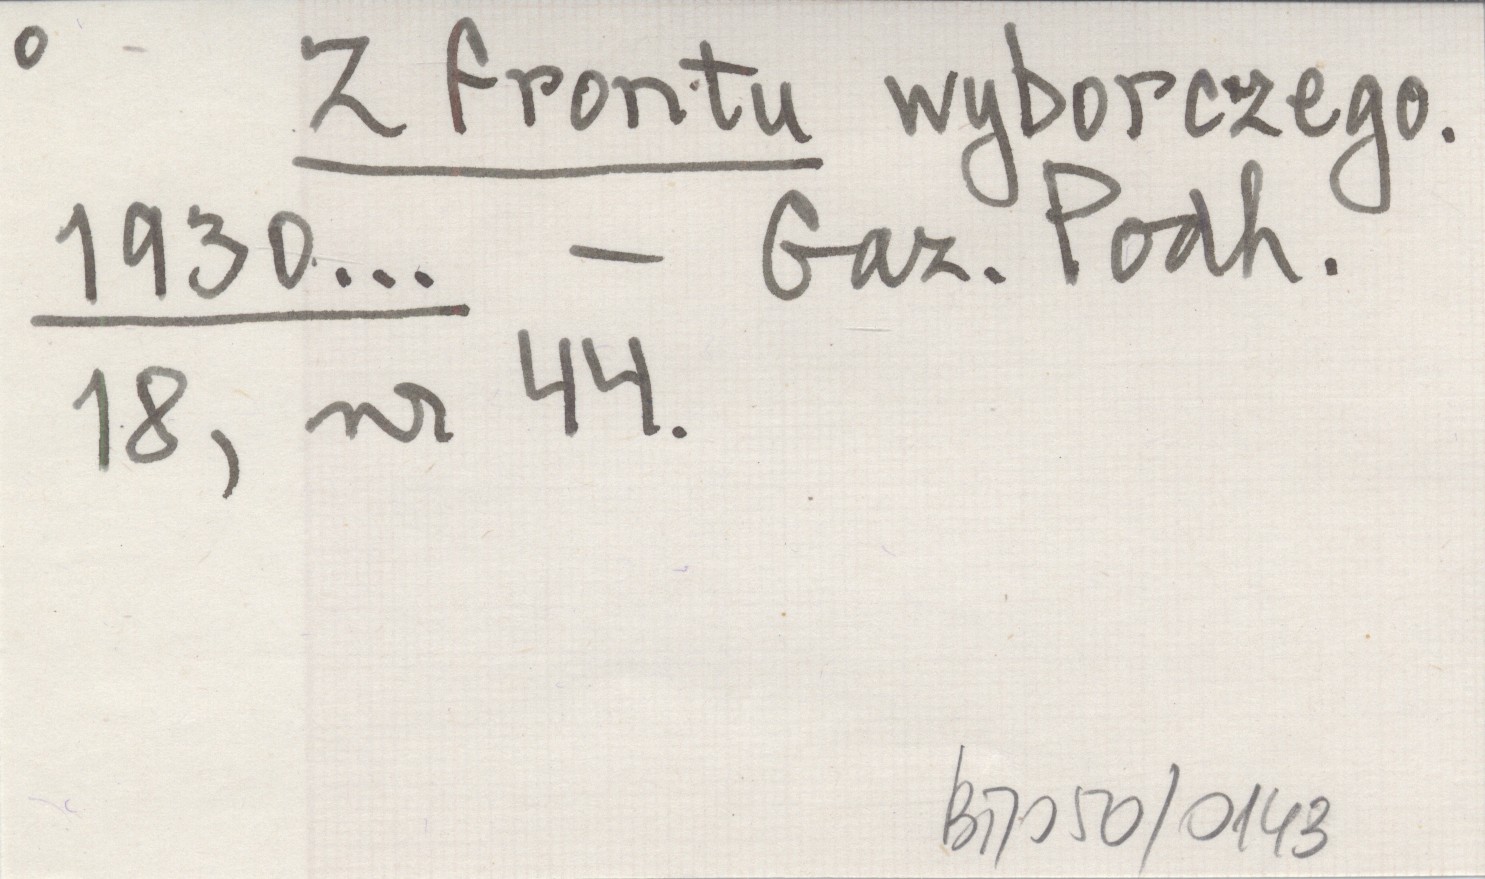 o - Z frontu wyborczego.
1930... - Gaz. Podh.
18, nr 44.